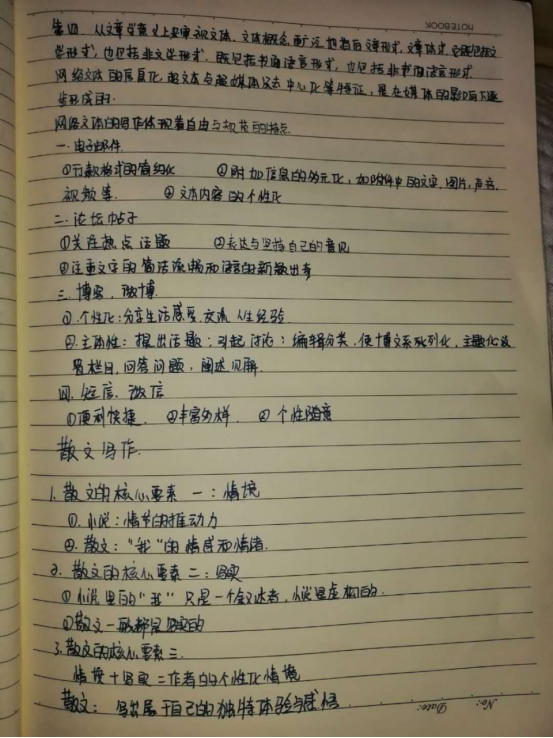 NOTEBOOK
第四. 从文章学意义上来审视文体. 文体概念更广泛地指向文章形式, 文章体式. 它既包括文
学形式, 也包括非文学形式. 既包括书面语言形式, 也包括非书面语言形式.
网络文体的层层化. 超文本与超媒体及去中心化等特征, 是在媒体的影响下逐
步形成的.
网络文体的写作体现着自由与规范的特点.
一. 电子邮件.
①行款格式的简约化 ②附加信息的多元化, 加附件中的文字. 图片, 声音.
视频等. ③文本内容的个性化
二. 论坛帖子
①关注热点话题 ②表达与坚持自己的意见
③注重文字的简洁流畅和语言的新颖出奇
三. 博客. 微博.
①.个性化: 分享生活感受. 交流人生经验.
②.主体性: 提出话题; 引起讨论; 编辑分类, 使博文系列化, 主题化设
置栏目, 回答问题, 阐述见解.
四. 短信. 微信
①便利快捷. ②丰富多样. ③个性随意
散文写作.
1. 散文的核心要素一: 情境
①. 小说: 情节的推动力
②. 散文: “我”的情感和情绪.
2. 散文的核心要素二: 写实
①小说里的“我”只是一个叙述者, 小说是虚构的.
②散文一般都是写实的
3. 散文的核心要素三.
情境+写实=作者的个性化情境
散文: 写出属于自己的独特体验与感悟
No: Date: